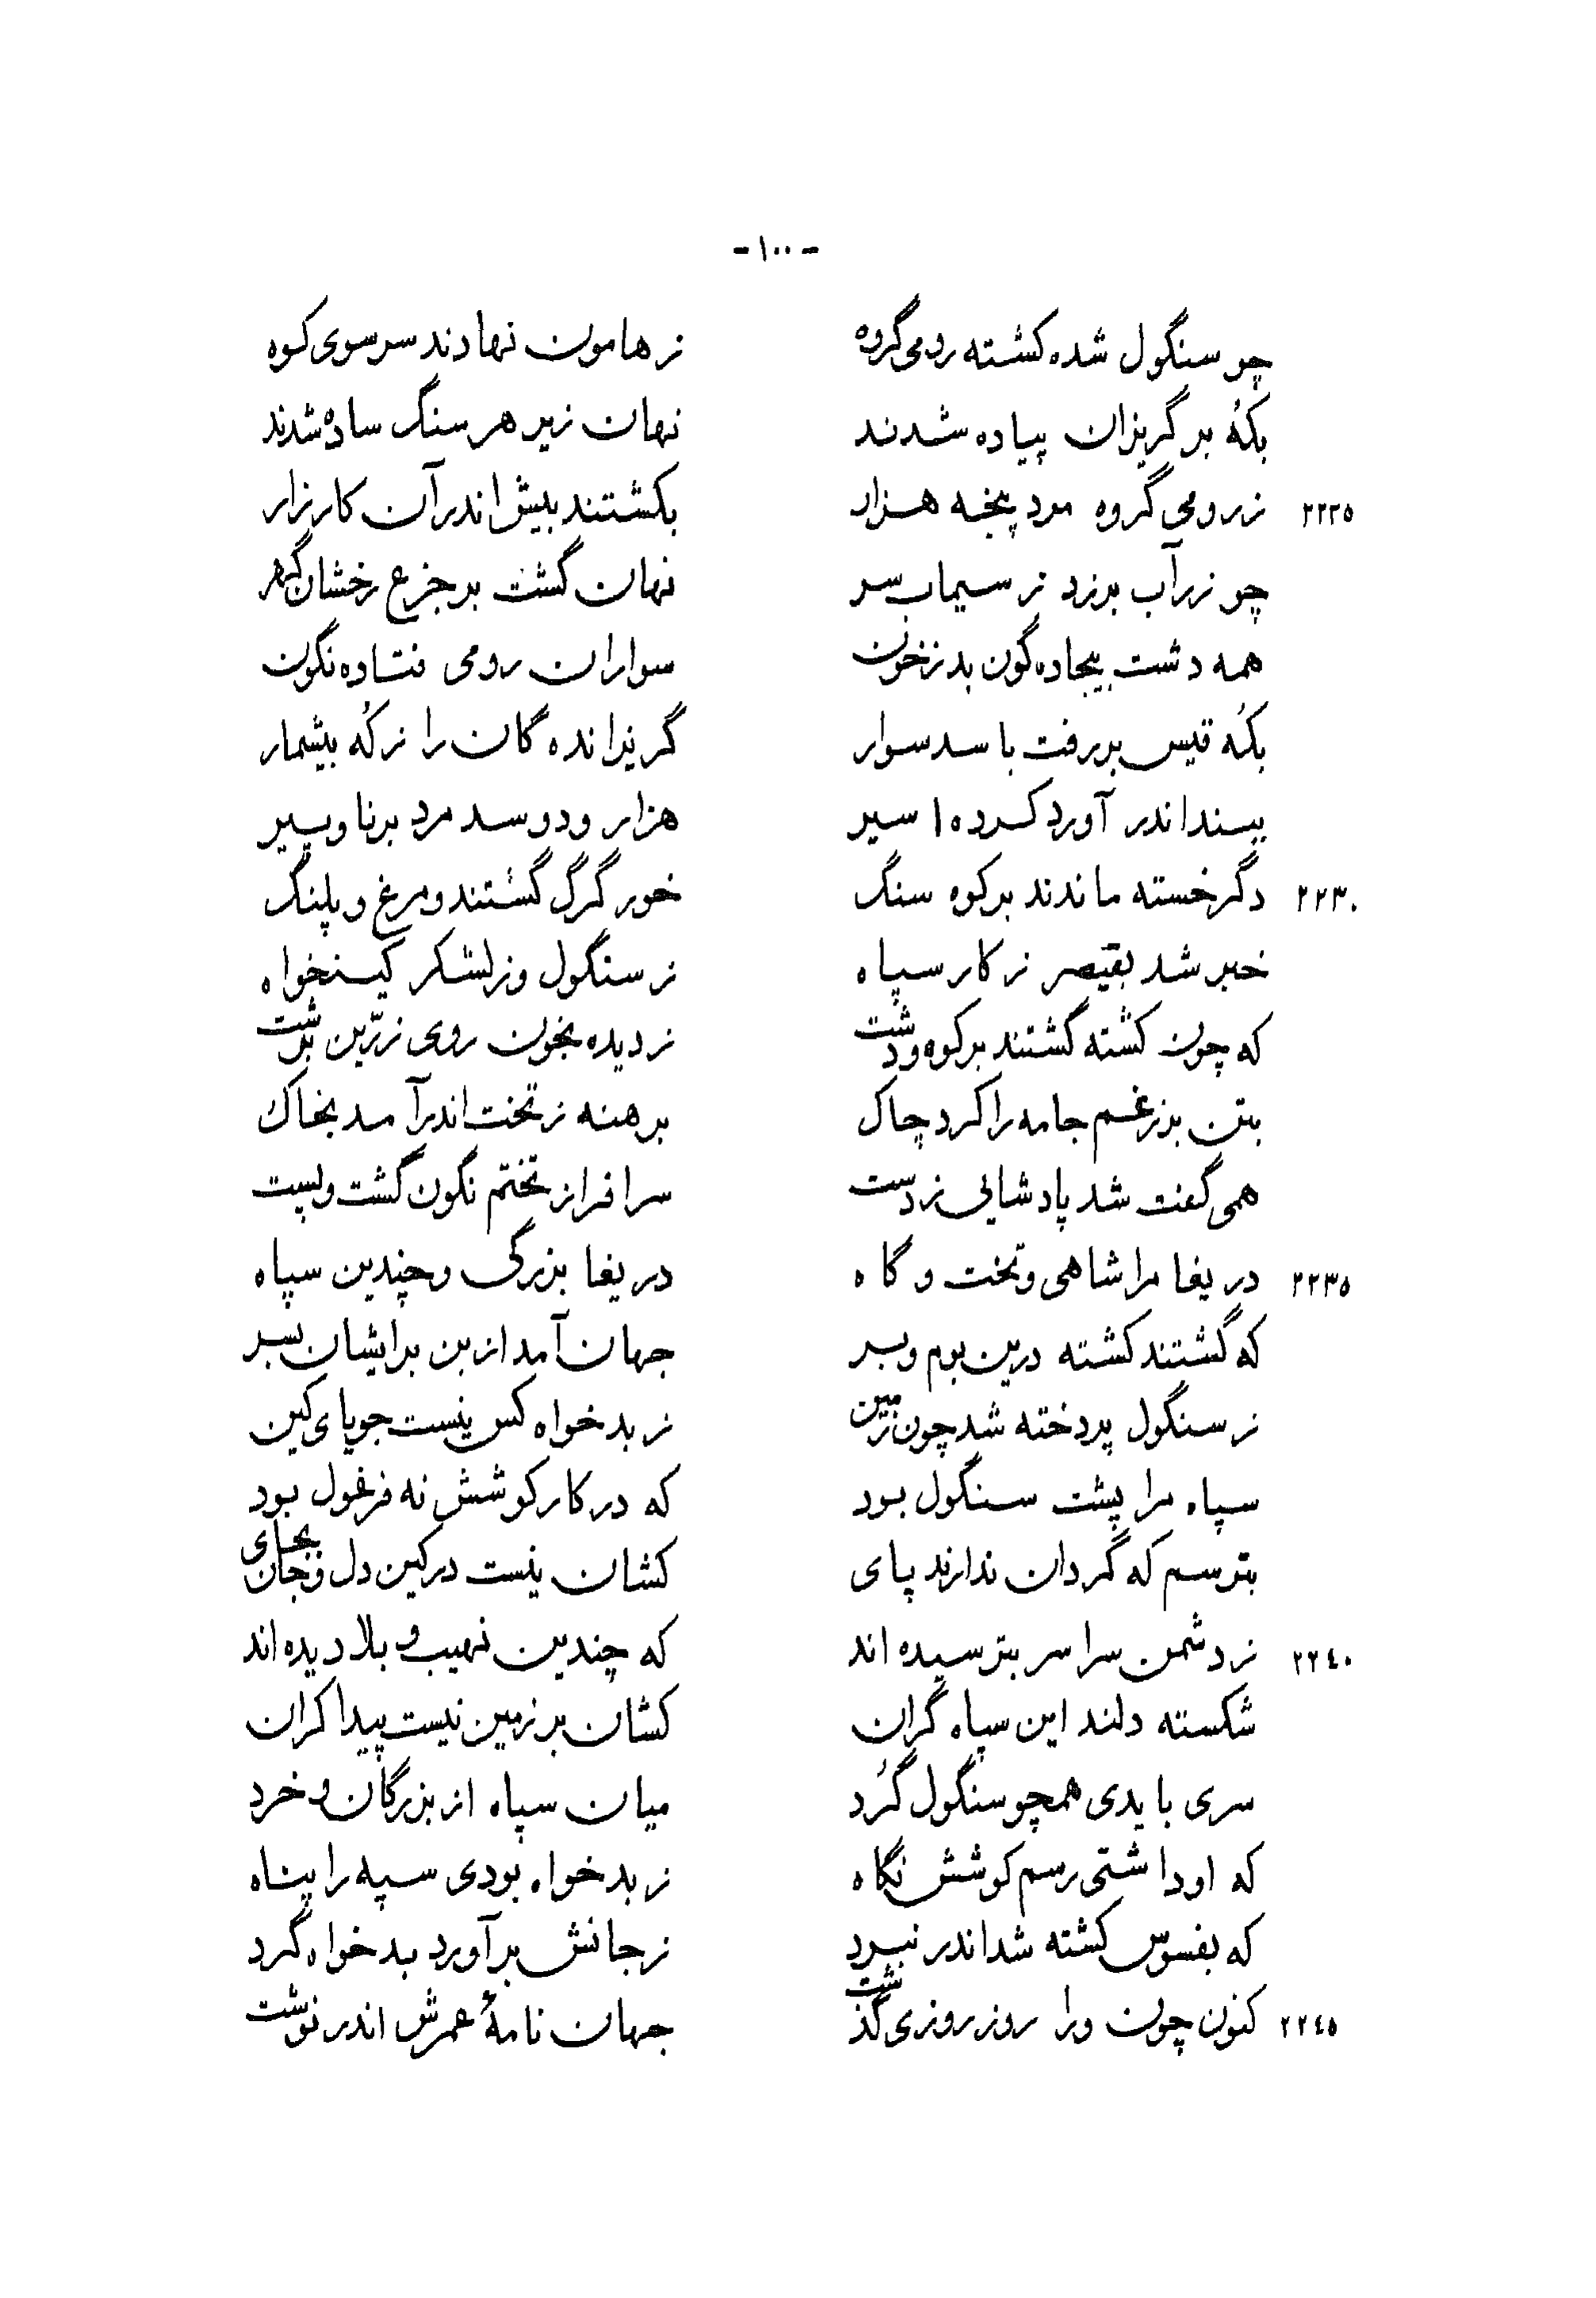 - ۱۰۰ -
چو سنگول شده کشته رومی گروه ز هامون نهادند سر سوی کوه
بکُه بر گریزان پیاده شدند نهان زیر هر سنگ ساده شدند
۲۲۲۵ ز رومی گروه مرد پنجه هزار بکشتند بیش اندر آن کارزار
چو زرآب برزد ز سیماب سر نهان گشت بر جزع رخشان گهر
همه دشت بیجاده گون بد ز خون سواران رومی فتاده نگون
بکُه قیس بر رفت با سد سوار گریزانده گان را ز کُه بیشمار
ببند اندر آورد کرده اسیر هزار و دو سد مرد برنا و پیر
۲۲۳۰ دگر خسته ماندند بر کوه سنگ خور گرگ گشتند و مرغ و پلنگ
خبر شد بقیصر ز کار سپاه ز سنگول وز لشکر کینه‌خواه
که چون کشته گشتند بر کوه و دشت ز دیده بخون روی زرّین بشت
بتن بر ز غم جامه را کرد چاک برهنه ز تخت اندر آمد بخاک
همی گفت شد پادشایی ز دست سرافراز تختم نگون گشت و پست
۲۲۳۵ دریغا مرا شاهی و تخت و گاه دریغا بزرگی و چندین سپاه
که گشتند کشته درین بوم و بر جهان آمد از بن بر ایشان بسر
ز سنگول پردخته شد چون زمین ز بدخواه کس نیست جویای کین
سپاه مرا پشت سنگول بود که در کار کوشش نه فرغول بود
بترسم که گردان ندارند پای کشان نیست در کین دل و جان بجای
۲۲۴۰ ز دشمن سراسر بترسیده اند که چندین نهیب و بلا دیده اند
شکسته دلند این سپاه گران کشان بر زمین نیست پیدا کران
سری بایدی همچو سنگول گُرد میان سپاه از بزرگان و خرد
که او داشتی رسم کوشش نگاه ز بدخواه بودی سپه را پناه
که بفسوس کشته شد اندر نبرد ز جانش برآورد بدخواه گرد
۲۲۴۵ کنون چون ورا روز روزی گذشت جهان نامهٔ عمرش اندر نوشت